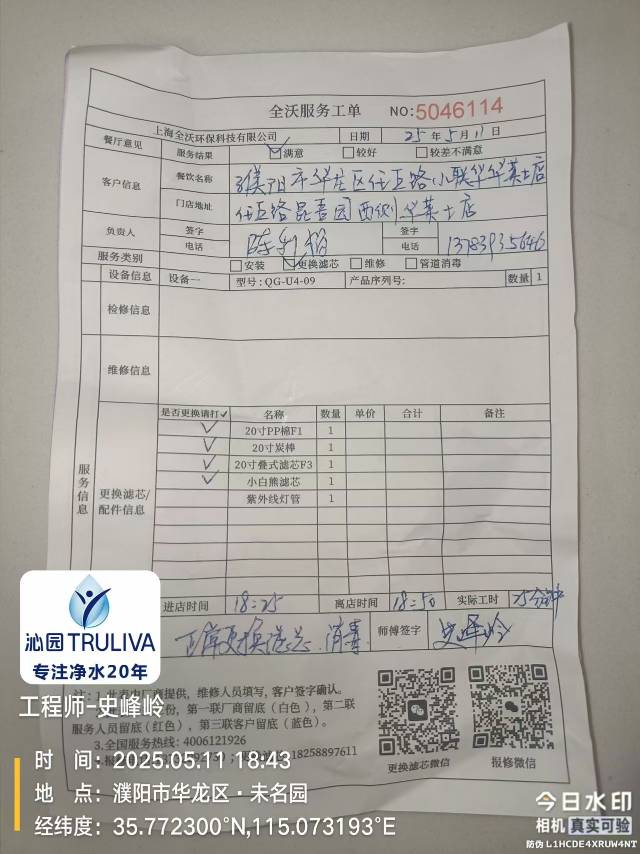 全沃服务工单 NO:5046114
上海全沃环保科技有限公司 日期 25年5月11日
餐厅意见 服务结果 ☑满意 □较好 □较差不满意
客户信息 餐饮名称 濮阳市华龙区任丘路小联华华莱士店
门店地址 任丘路昆吾园西侧华莱士店
负责人 签字 签字
电话 电话 13783935646
服务类别 □安装 ☑更换滤芯 □维修 □管道消毒
设备信息 设备一 型号:QG-U4-09 产品序列号: 数量 1
检修信息
维修信息
服务信息
更换滤芯/配件信息
是否更换请打✓ 名称 数量 单价 合计 备注
✓ 20寸PP棉F1 1
✓ 20寸炭棒 1
✓ 20寸叠式滤芯F3 1
✓ 小白熊滤芯 1
紫外线灯管 1
进店时间 18:25 离店时间 18:50 实际工时 25分钟
更换滤芯、消毒 师傅签字 史峰岭
注:1.此表由厂商提供，维修人员填写，客户签字确认。
份，第一联厂商留底（白色），第二联
服务人员留底(红色)，第三联客户留底（蓝色）。
3.全国服务热线:4006121926
18258897611
更换滤芯微信 报修微信
沁园TRULIVA
专注净水20年
工程师-史峰岭
时 间：2025.05.11 18:43
地 点：濮阳市华龙区·未名园
经纬度：35.772300°N,115.073193°E
今日水印
相机 真实可验
防伪 L1HCDE4XRUW4NT